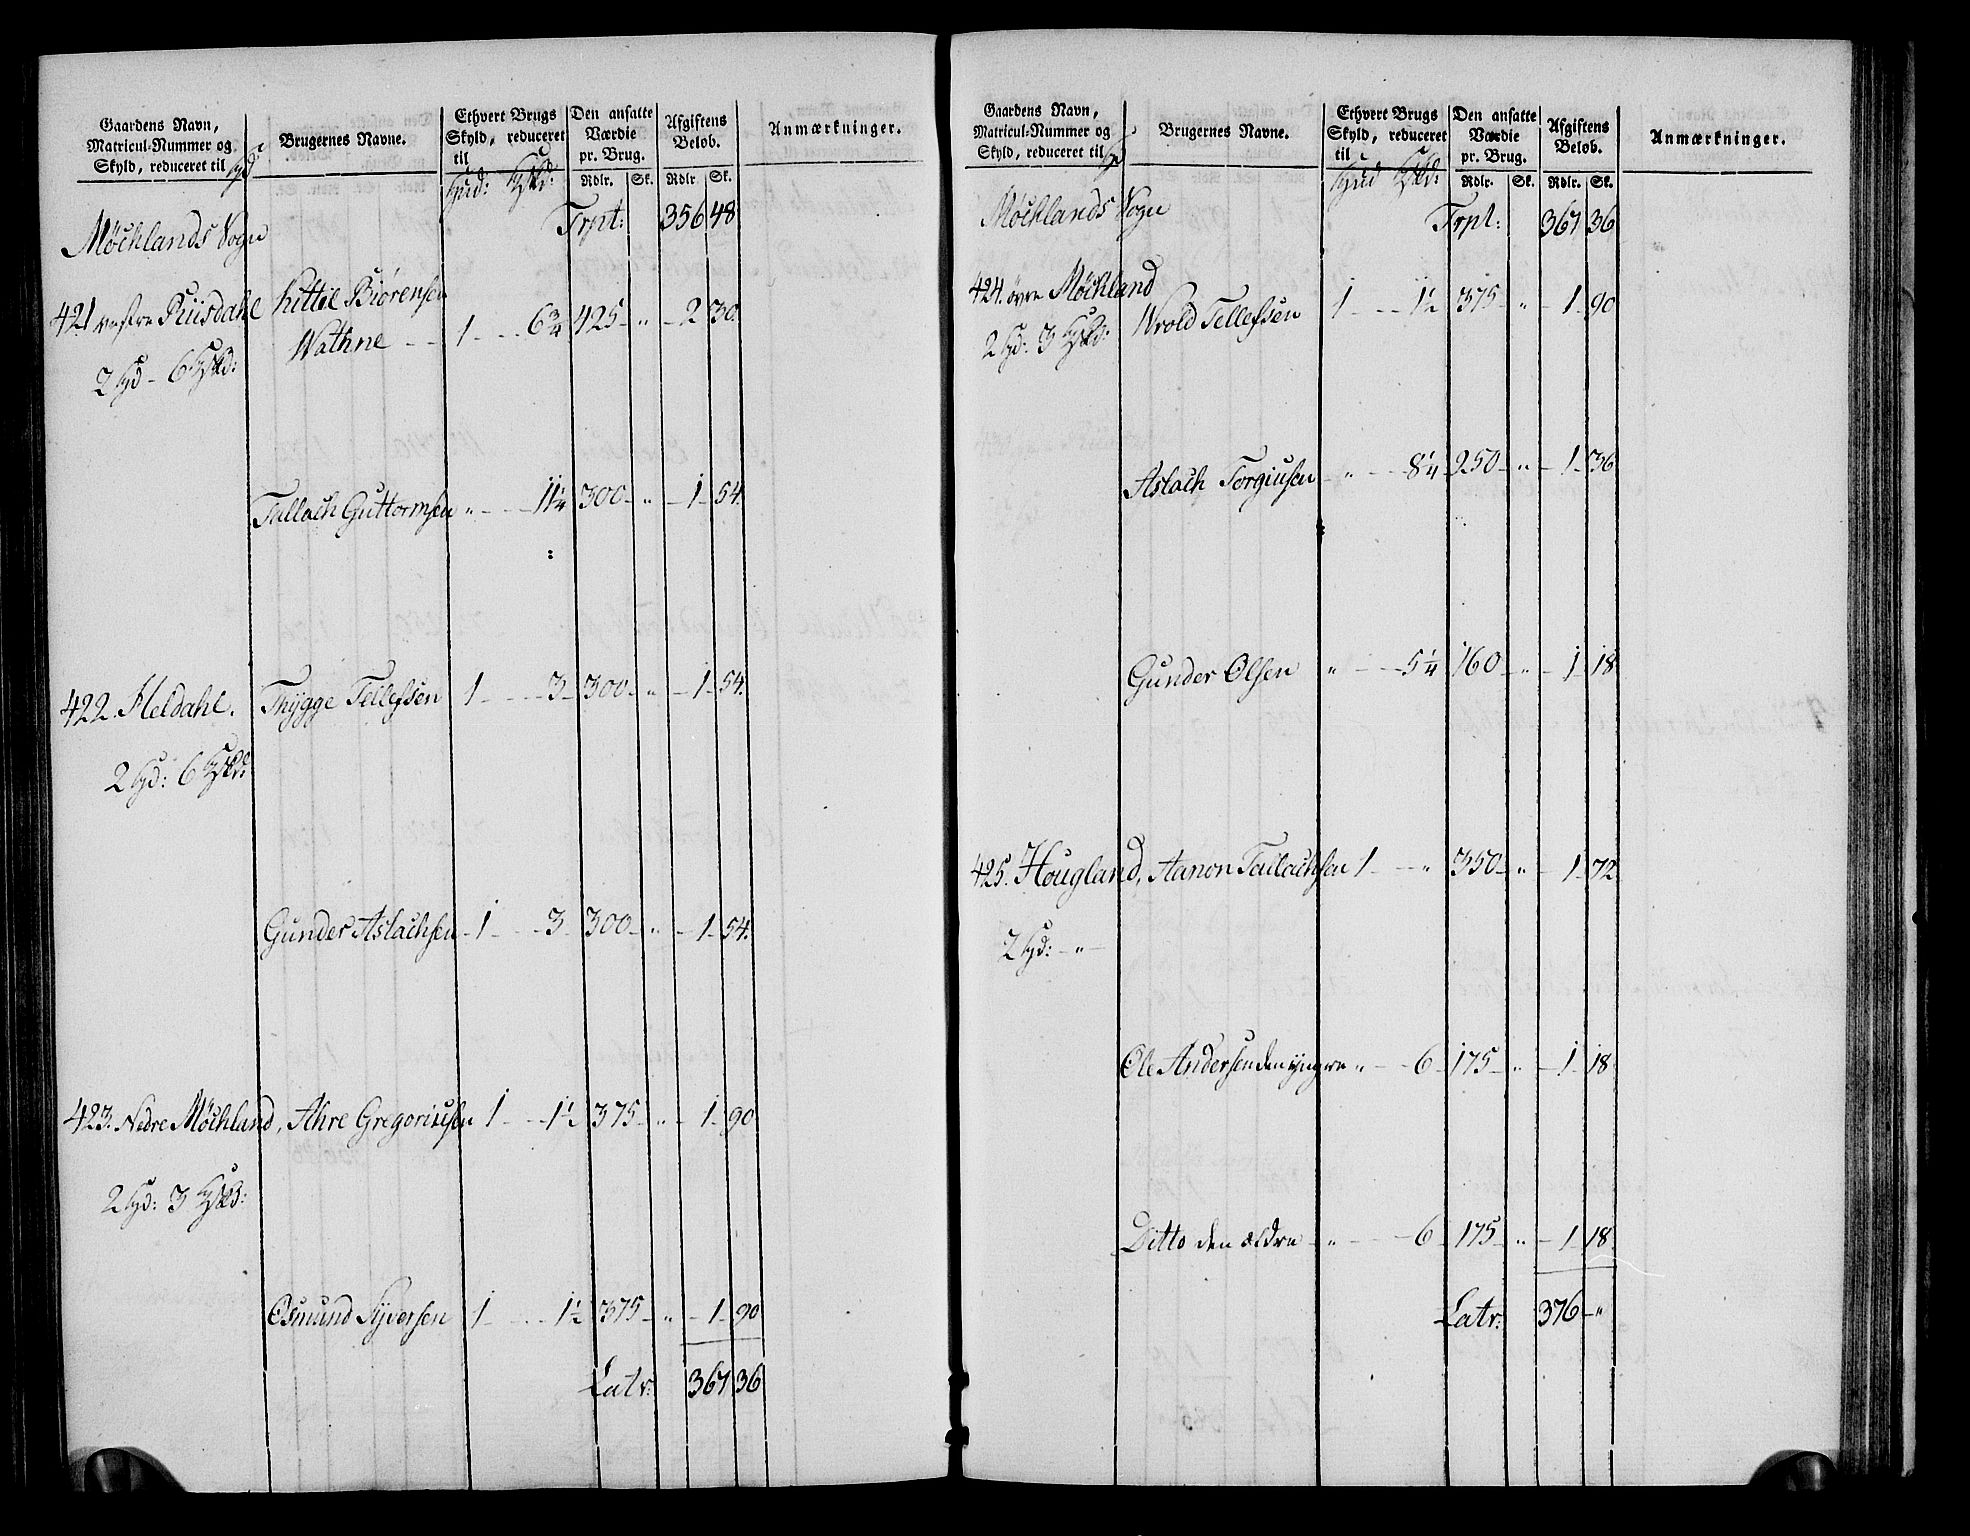 Gaardens Navn, Matricul-Nummer og Skyld, reduceret til Hd | Brugernes Navne. | Ethvert Brugs Skyld, reduceret til Hud: Kskd: | Den ansatte Værdie pr. Brug. Rdlr. Sk. | Afgiftens Beløb. Rdlr Sk. | Anmærkninger.
Møchlands Sogn Trpt: 356 48
421 vestre Riisdahl Kittil Biörensen
Wathne - - 1 - - - 6 3/4 425 - " - 2 30
2 Hd - 6 Kskd:
Tallach Guttormsen " - - - 11 1/4 300 - " - 1 - 54.
422. Heldahl. Thygge Tellefsen 1 - - - 3 - 300 - " - 1 - 54.
2 Hd: 6 Kskd:
Gunder Aslachsen - 1 - - - 3 - 300 - " - 1 - 54.
423. Nedre Møchland, Ahre Gregoriusen 1 - - - 1 1/2 375 - " - 1 - 90
2 Hd: 3 Kskd:
Osmund Syversen 1 - - - 1 1/2 375 - " - 1 - 90
Latr: 367 36
Gaardens Navn, Matricul-Nummer og Skyld, reduceret til Hd | Brugernes Navne. | Ethvert Brugs Skyld, reduceret til Hud Kskd: | Den ansatte Værdie pr. Brug. Rdlr. Sk. | Afgiftens Beløb. Rdlr. Sk. | Anmærkninger.
Møchlands Sogn Trpt: 367 36
424. övre Møchland Wrold Tellefsen 1 - - - 1 1/2 375 - " - 1 - 90
2 Hd: 3 Kskd:
Aslach Torgiusen - " - - - 8 1/4 250 - " - 1 - 36
Gunder Olsen " - - - 5 1/4 160 - " - 1 - 18
425. Hougland, Aanon Tallachsen 1 - - - " 350 - " - 1 - 72.
2 Hd: - " -
Ole Andersen den yngre " - - - 6 - 175 - " - 1 - 18
Ditto den ældre - " - - - 6 - 175 - " - 1 18
Latr: 376 - "